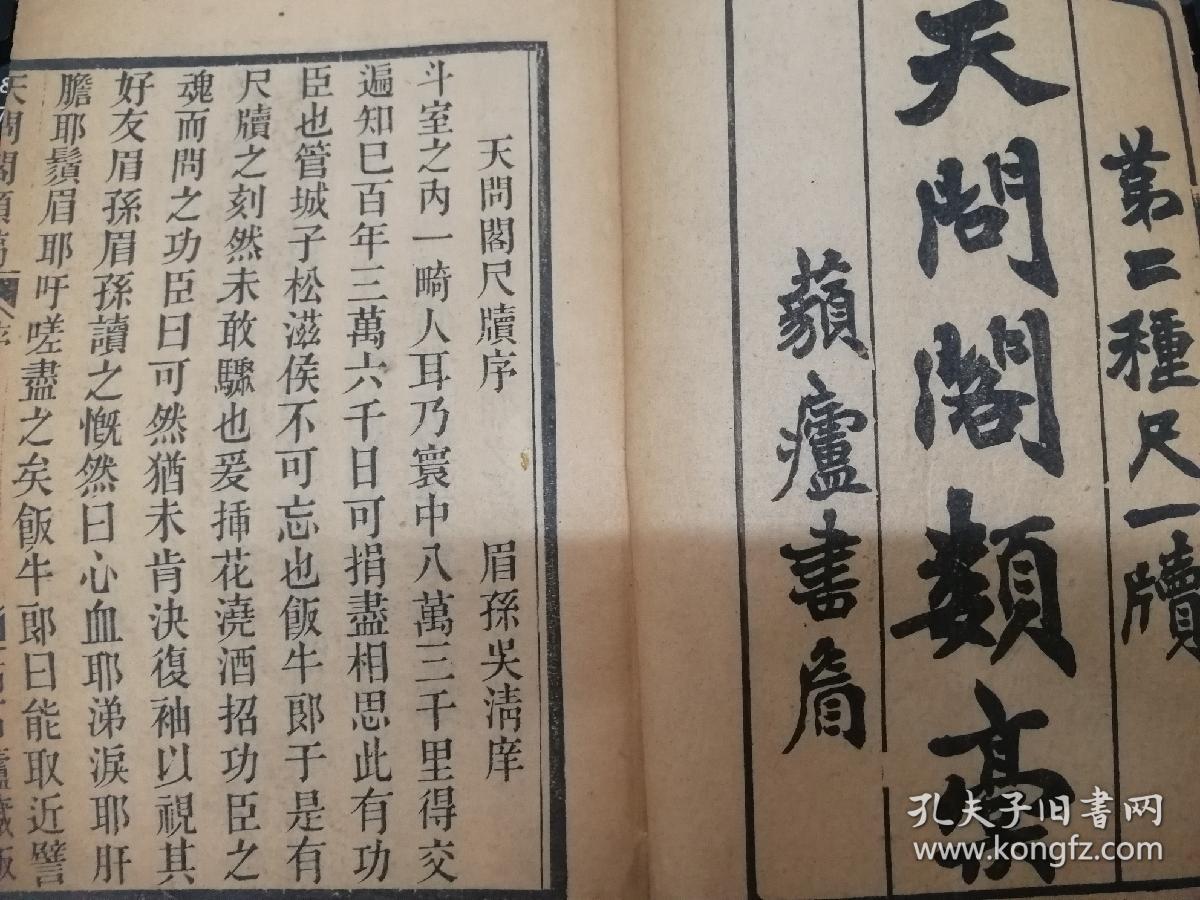 第二種尺一牘
天問閣類稾
蘋廬書眉
天問閣尺牘序 眉孫吳淸庠
斗室之內一畸人耳乃寰中八萬三千里得交
遍知巳百年三萬六千日可捐盡相思此有功
臣也管城子松滋侯不可忘也飯牛郎于是有
尺牘之刻然未敢驟也爰揷花澆酒招功臣之
魂而問之功臣曰可然猶未肯決復袖以視其
好友眉孫眉孫讀之慨然曰心血耶涕淚耶肝
膽耶鬚眉耶吁嗟盡之矣飯牛郎曰能取近譬
天問閣類稾 序
廬藏版
孔夫子旧书网
www.kongfz.com